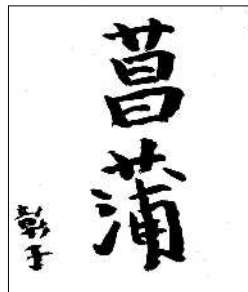 菖蒲
彰子